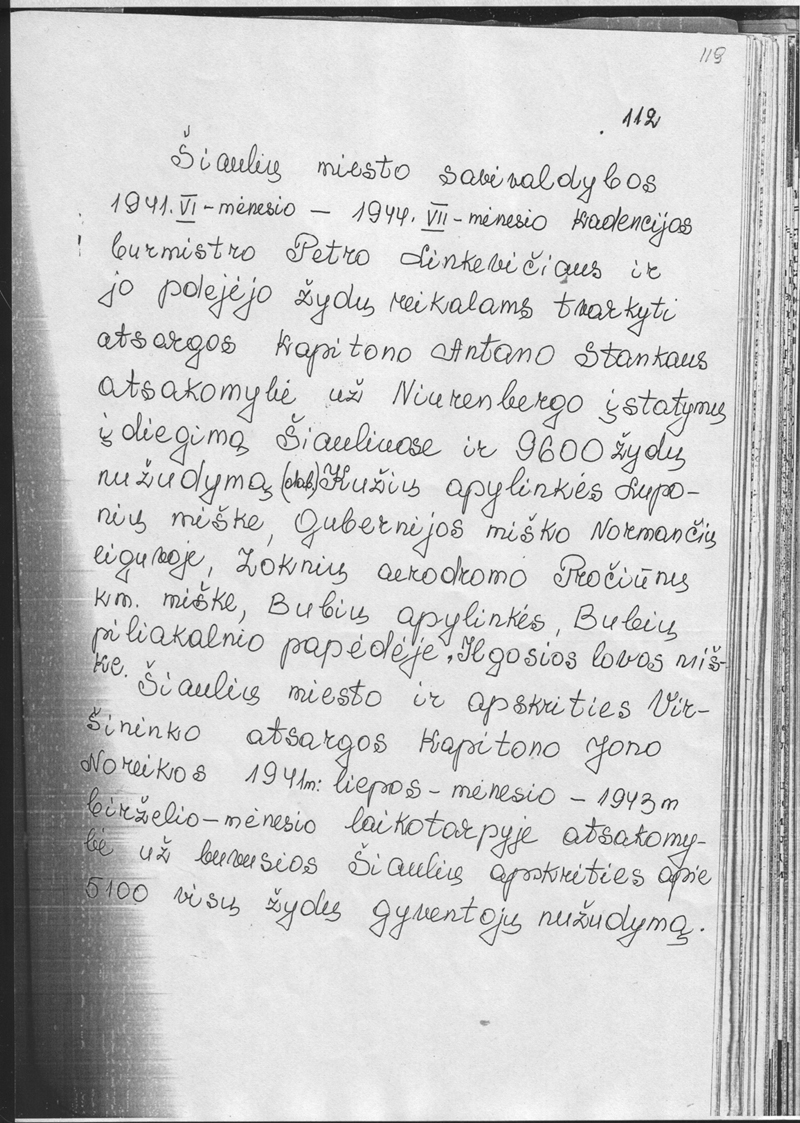 119
112
Šiaulių miesto savivaldybos
1941.VI-mėnesio – 1944.VII-mėnesio kadencijos
burmistro Petro Linkevičiaus ir
jo pdejėjo žydų reikalams tvarkyti
atsargos kapitono Antano Stankaus
atsakomybė už Niurenbergo įstatymų
įdiegimą Šiauliuose ir 9600 žydų
nužudymą Kužių apylinkės Lupo-
nių miške, Gubernijos miško Normančių
eiguvoje, Zoknių aerodromo Pročiūnų
km. miške, Bubių apylinkės, Bubių
piliakalnio papėdėje. Ilgosios lovos miš-
ke. Šiaulių miesto ir apskrities Vir-
šininko atsargos kapitono Jono
Noreikos 1941m: liepos-mėnesio – 1943m
birželio-mėnesio laikotarpyje atsakomy-
bė už buvusios Šiaulių apskrities apie
5100 visų žydų gyventojų nužudymą.